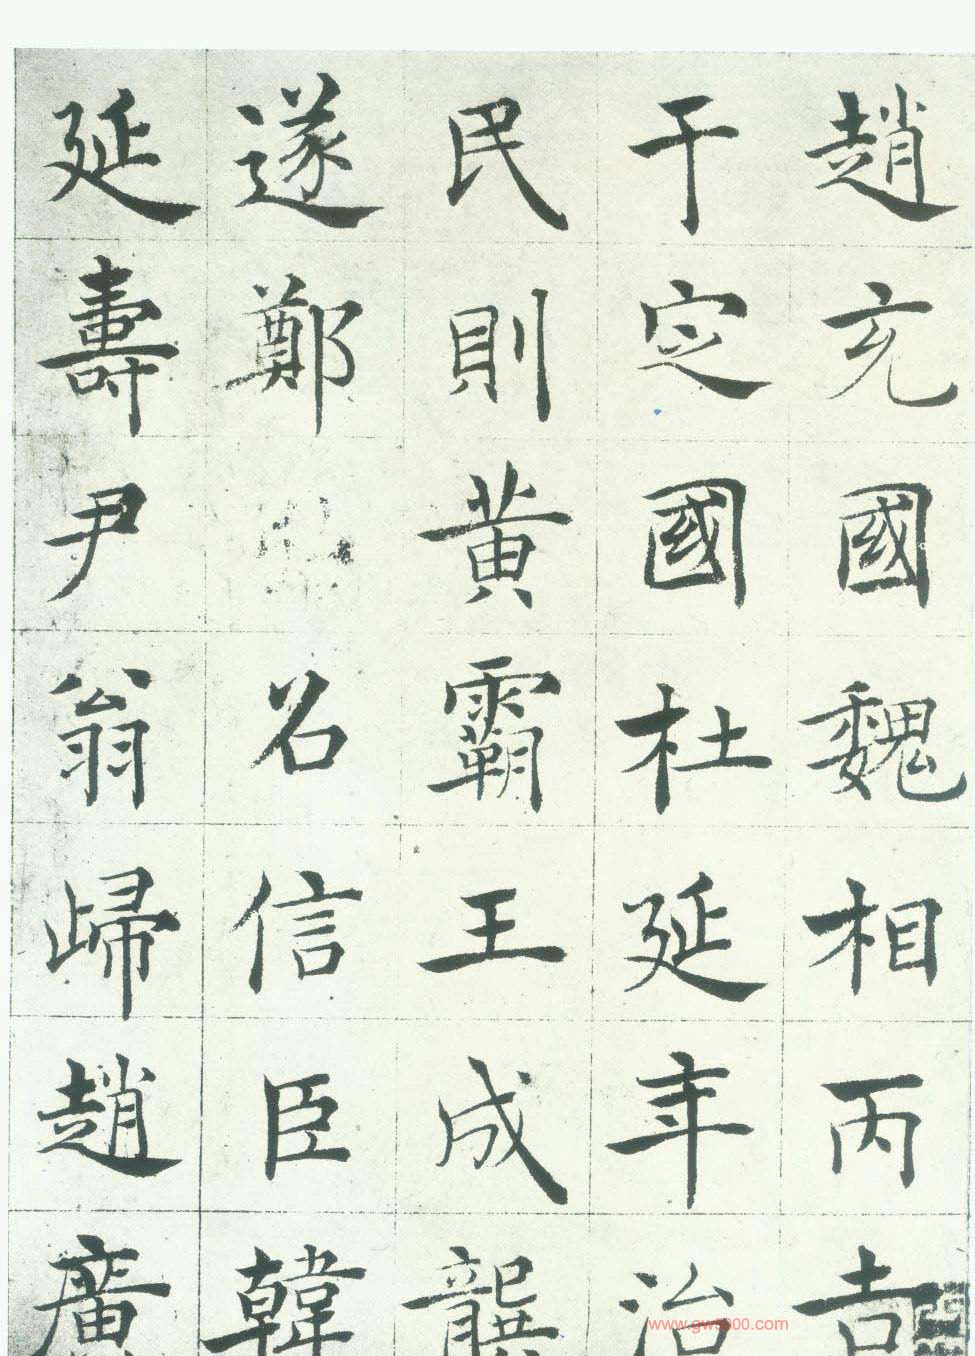 趙充國魏相丙吉
于定國杜延年治
民則黃霸王成龔
遂鄭名信臣韓
延壽尹翁歸趙廣
www.gw5000.com